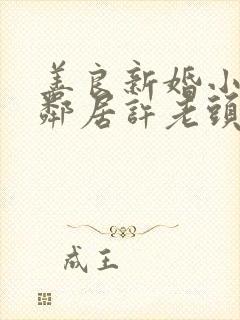 善良新婚小
鄰居許老頭
成王